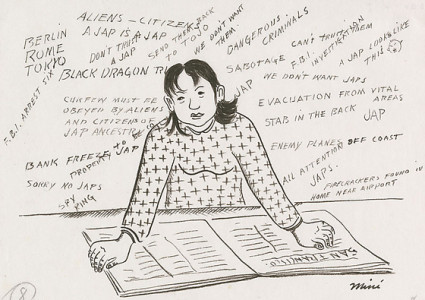 ALIENS - CITIZENS
A JAP IS A JAP
BERLIN
ROME
TOKYO
DON'T TRUST A JAP
SEND THEM BACK
TO TOJO
WE DON'T WANT
THEM
BLACK DRAGON
DANGEROUS
CRIMINALS
SABOTAGE
CAN'T TRUST
F.B.I. INVESTIGATE THEM
A JAP LOOKS LIKE
THIS
F.B.I. ARREST SIX
CURFEW MUST BE
OBEYED BY ALIENS
AND CITIZENS OF
JAP ANCESTRY
JAP
WE DON'T WANT JAPS
EVACUATION FROM VITAL
AREAS
STAB IN THE BACK JAP
ENEMY PLANES OFF COAST
BANK FREEZE JAP
PROPERTY
SORRY NO JAPS
SPY
RING
ALL ATTENTION
JAPS.
FIRECRACKERS FOUND IN
HOME NEAR AIRPORT
SAN FRANCISCO
miné
8